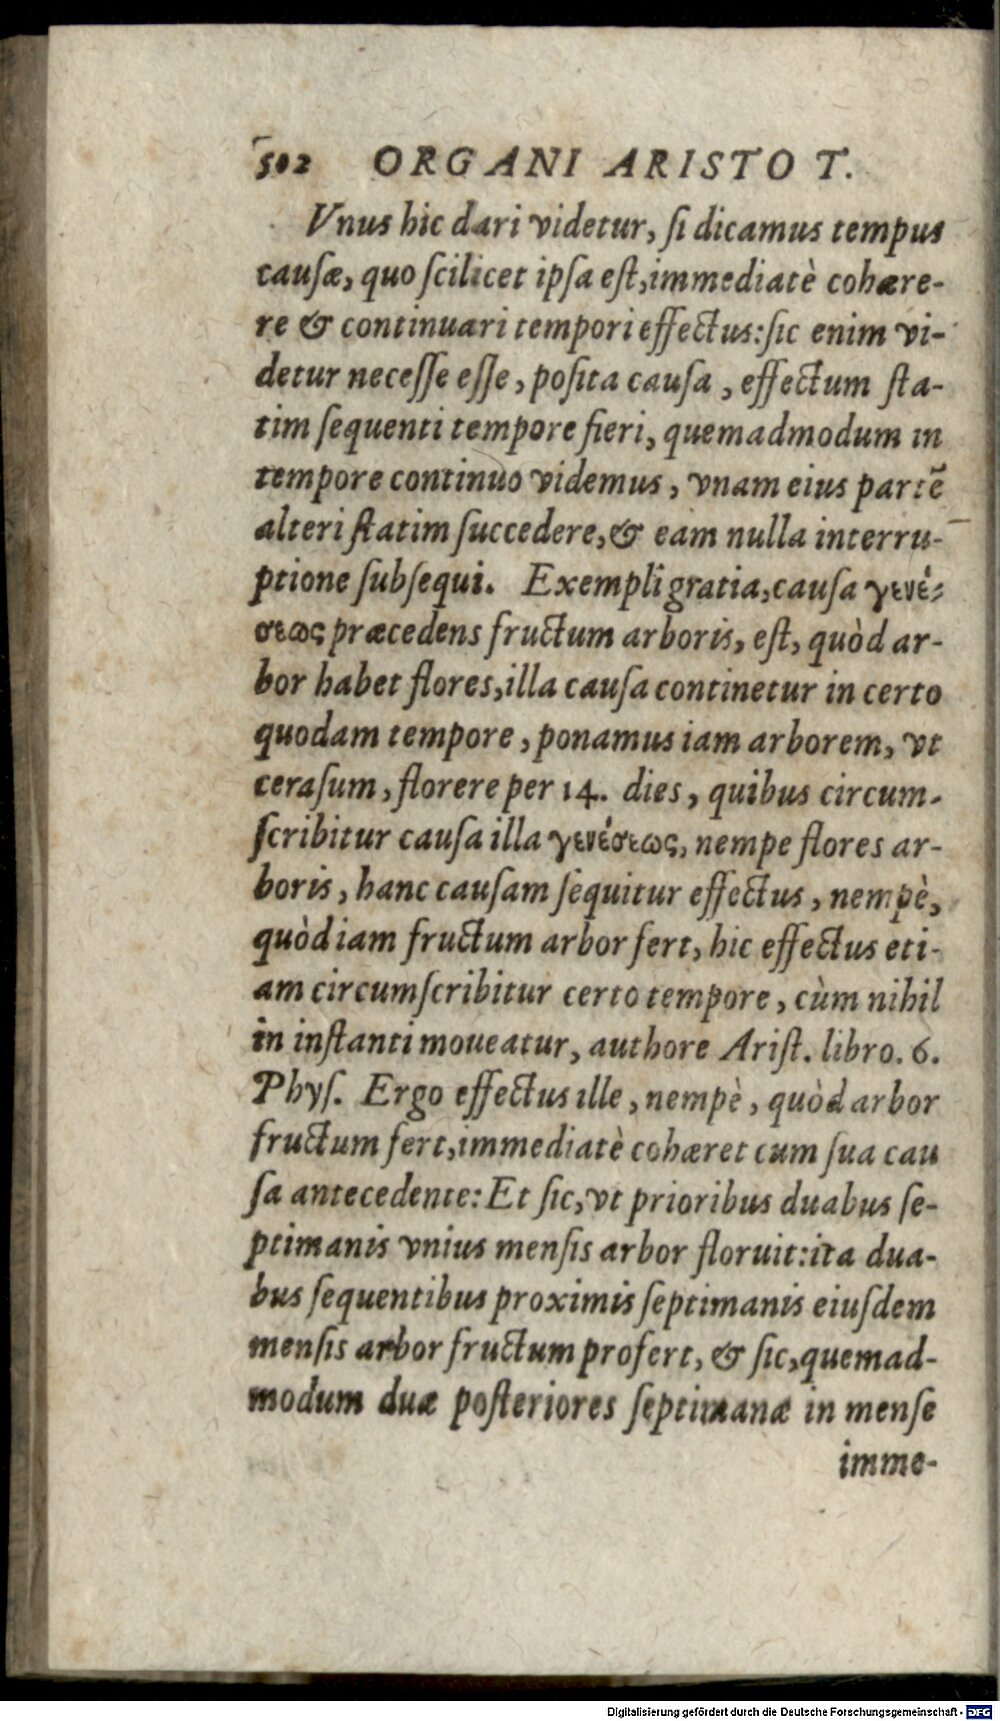 502 ORGANI ARISTOT.
Vnus hic dari videtur, ſi dicamus tempus
cauſæ, quo ſcilicet ipſa eſt, immediatè cohære-
re & continuari tempori effectus: ſic enim vi-
detur neceſſe eſſe, poſita cauſa, effectum ſta-
tim ſequenti tempore fieri, quemadmodum in
tempore continuo videmus, vnam eius partẽ
alteri ſtatim ſuccedere, & eam nulla interru-
ptione ſubſequi. Exempli gratia, cauſa γενέ-
σεως præcedens fructum arboris, eſt, quòd ar-
bor habet flores, illa cauſa continetur in certo
quodam tempore, ponamus iam arborem, vt
ceraſum, florere per 14. dies, quibus circum-
ſcribitur cauſa illa γενέσεως, nempe flores ar-
boris, hanc cauſam ſequitur effectus, nempè,
quòd iam fructum arbor fert, hic effectus eti-
am circumſcribitur certo tempore, cùm nihil
in inſtanti moueatur, authore Ariſt. libro. 6.
Phyſ. Ergo effectus ille, nempè, quòd arbor
fructum fert, immediatè cohæret cum ſua cau
ſa antecedente: Et ſic, vt prioribus duabus ſe-
ptimanis vnius menſis arbor floruit: ita dua-
bus ſequentibus proximis ſeptimanis eiuſdem
menſis arbor fructum profert, & ſic, quemad-
modum duæ poſteriores ſeptimanæ in menſe
imme-
Digitalisierung gefördert durch die Deutsche Forschungsgemeinschaft - DFG